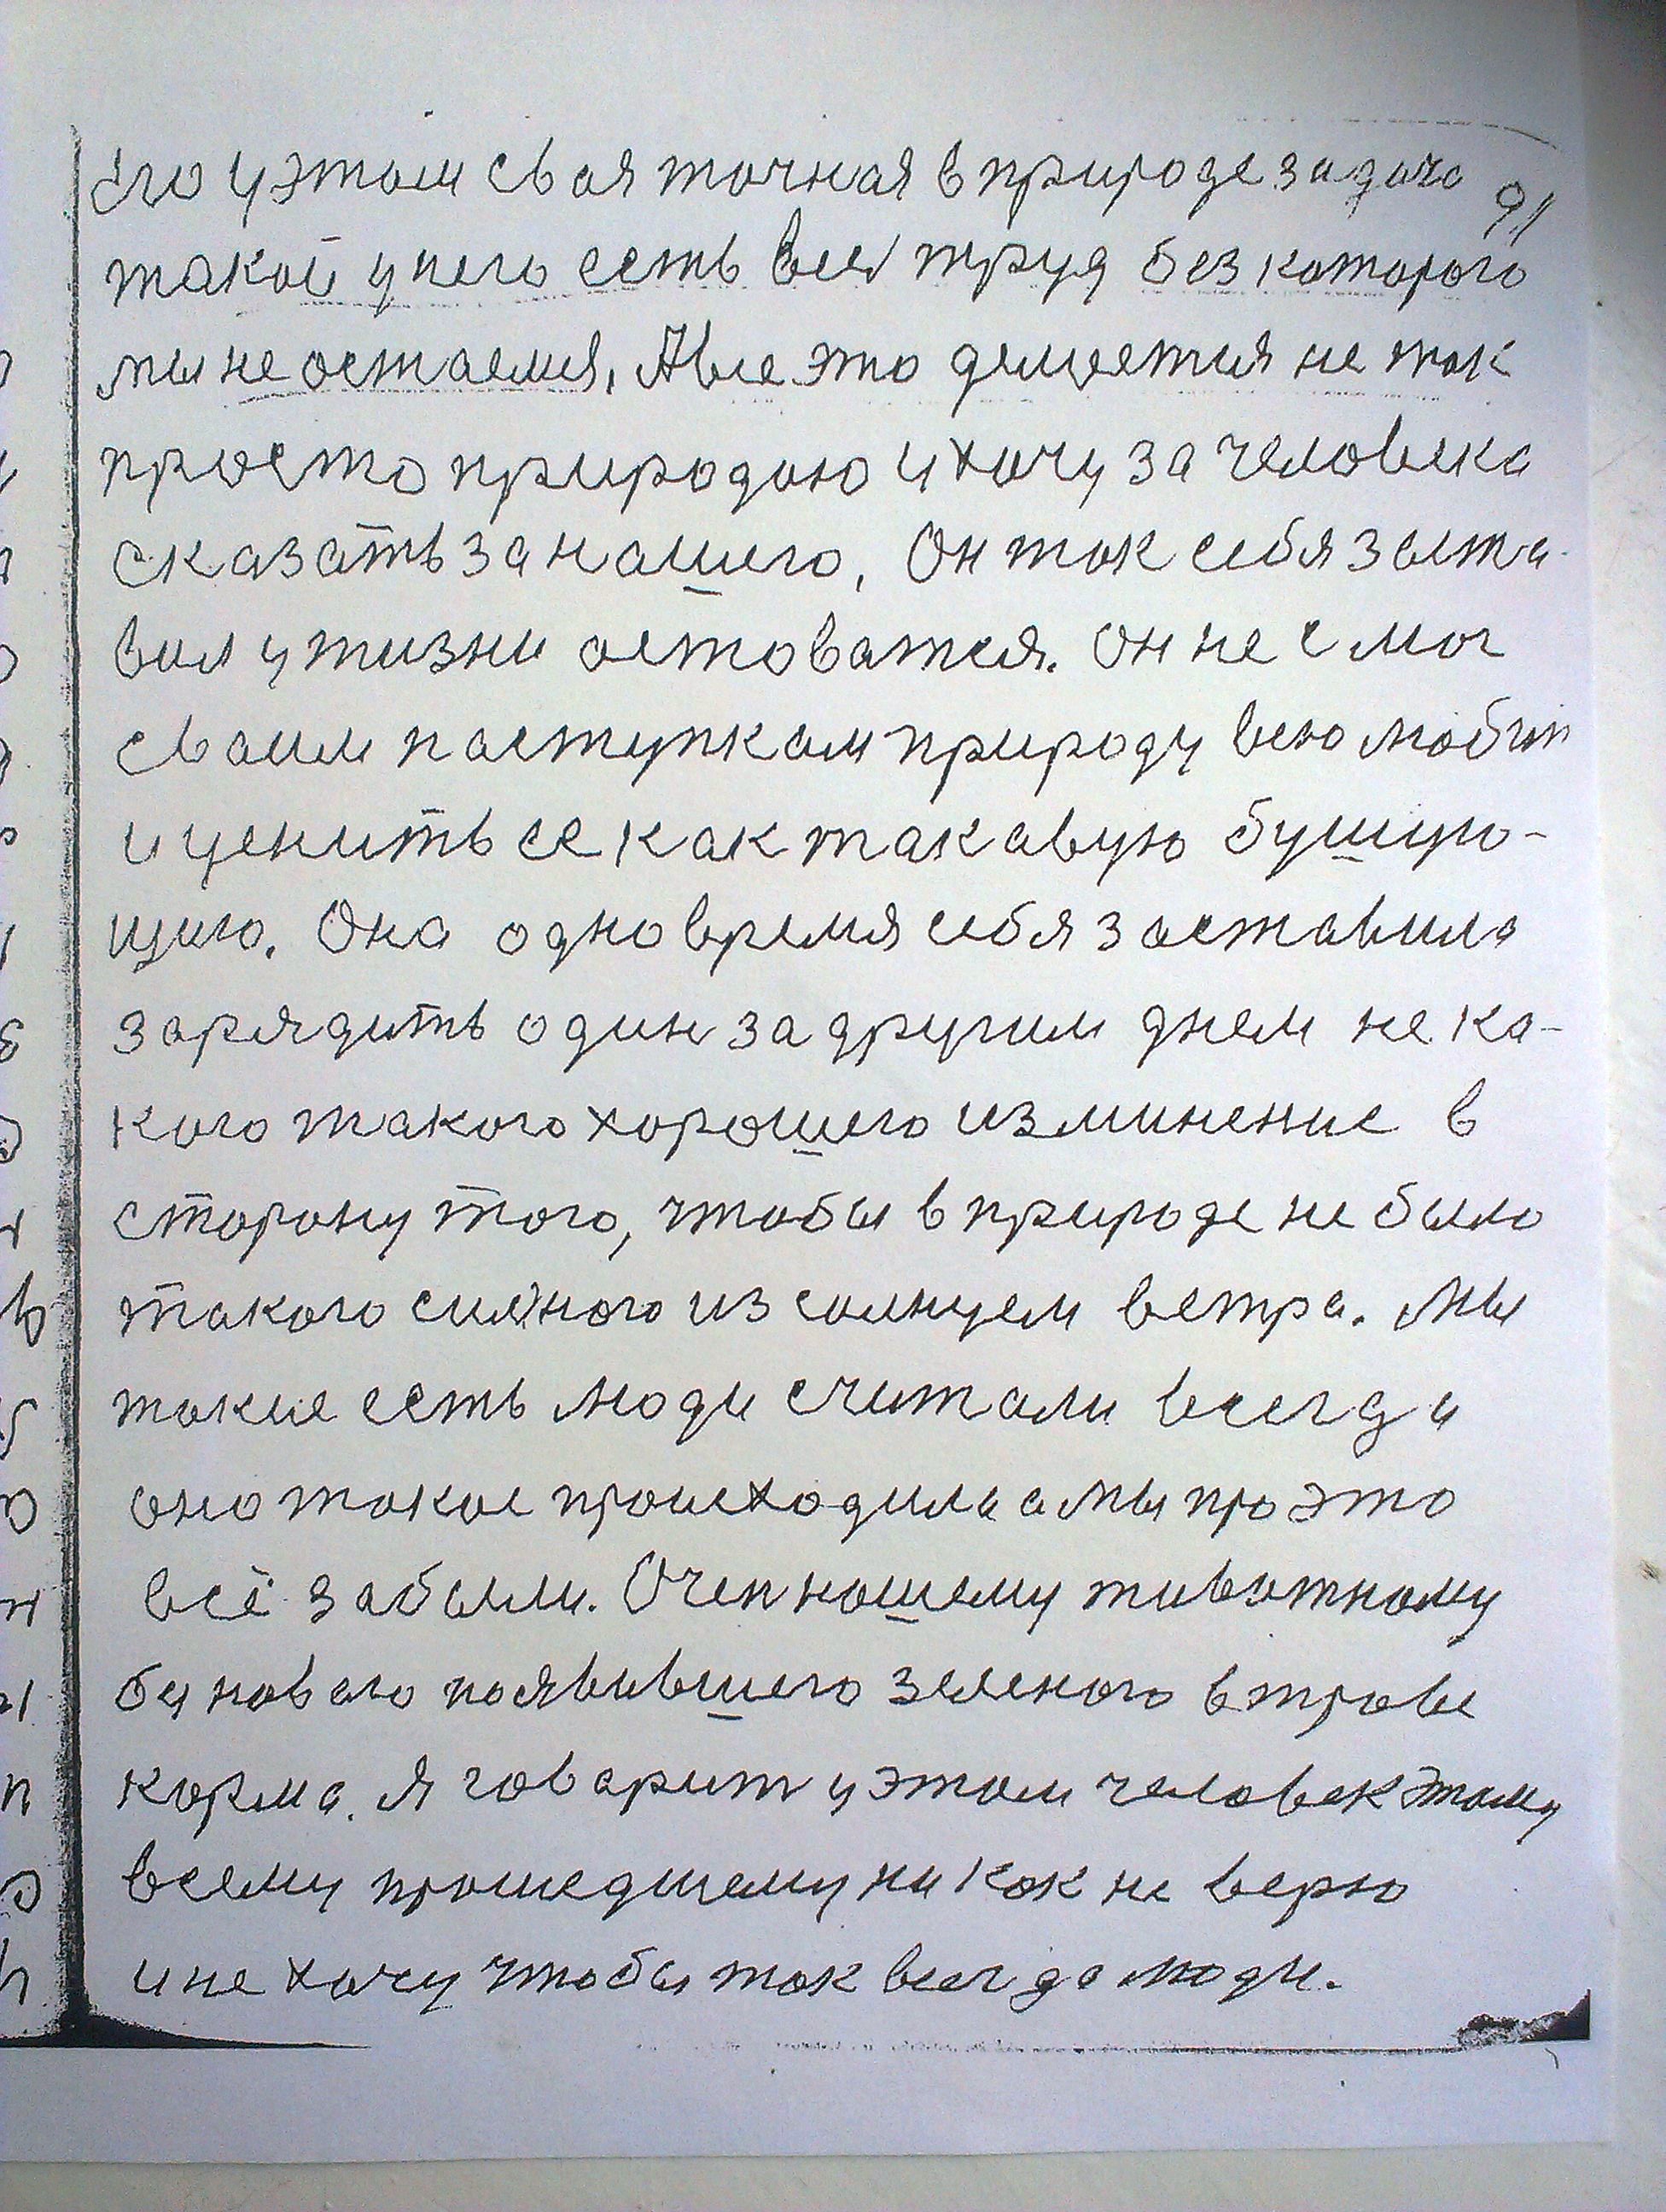 его у этом свая точная в природе задача
91
такой у него есть весь труд без которого
мы не остаемся. А все это делается не так
просто природою и хочу за человека
сказать за нашего. Он так себя заста-
вил у жизни оставатся. Он не смог
сваим паступкам природу всю любит
и ценить ее как такавую бушую-
щию. Она одно время себя заставила
зарядить один за другим днем не ка-
кого такого хорошего изминение в
сторону того, чтобы в природе не было
такого силного из солнцем ветра. Мы
такие есть люди считали всегда
оно такое происходила а мы про это
всё забыли. Очен нашему животному
бу новаго появившего зеленого в траве
корма. Я говарит у этом человек этому
всему прошедшему ни как не верю
и не хочу чтобы так всегда люди.